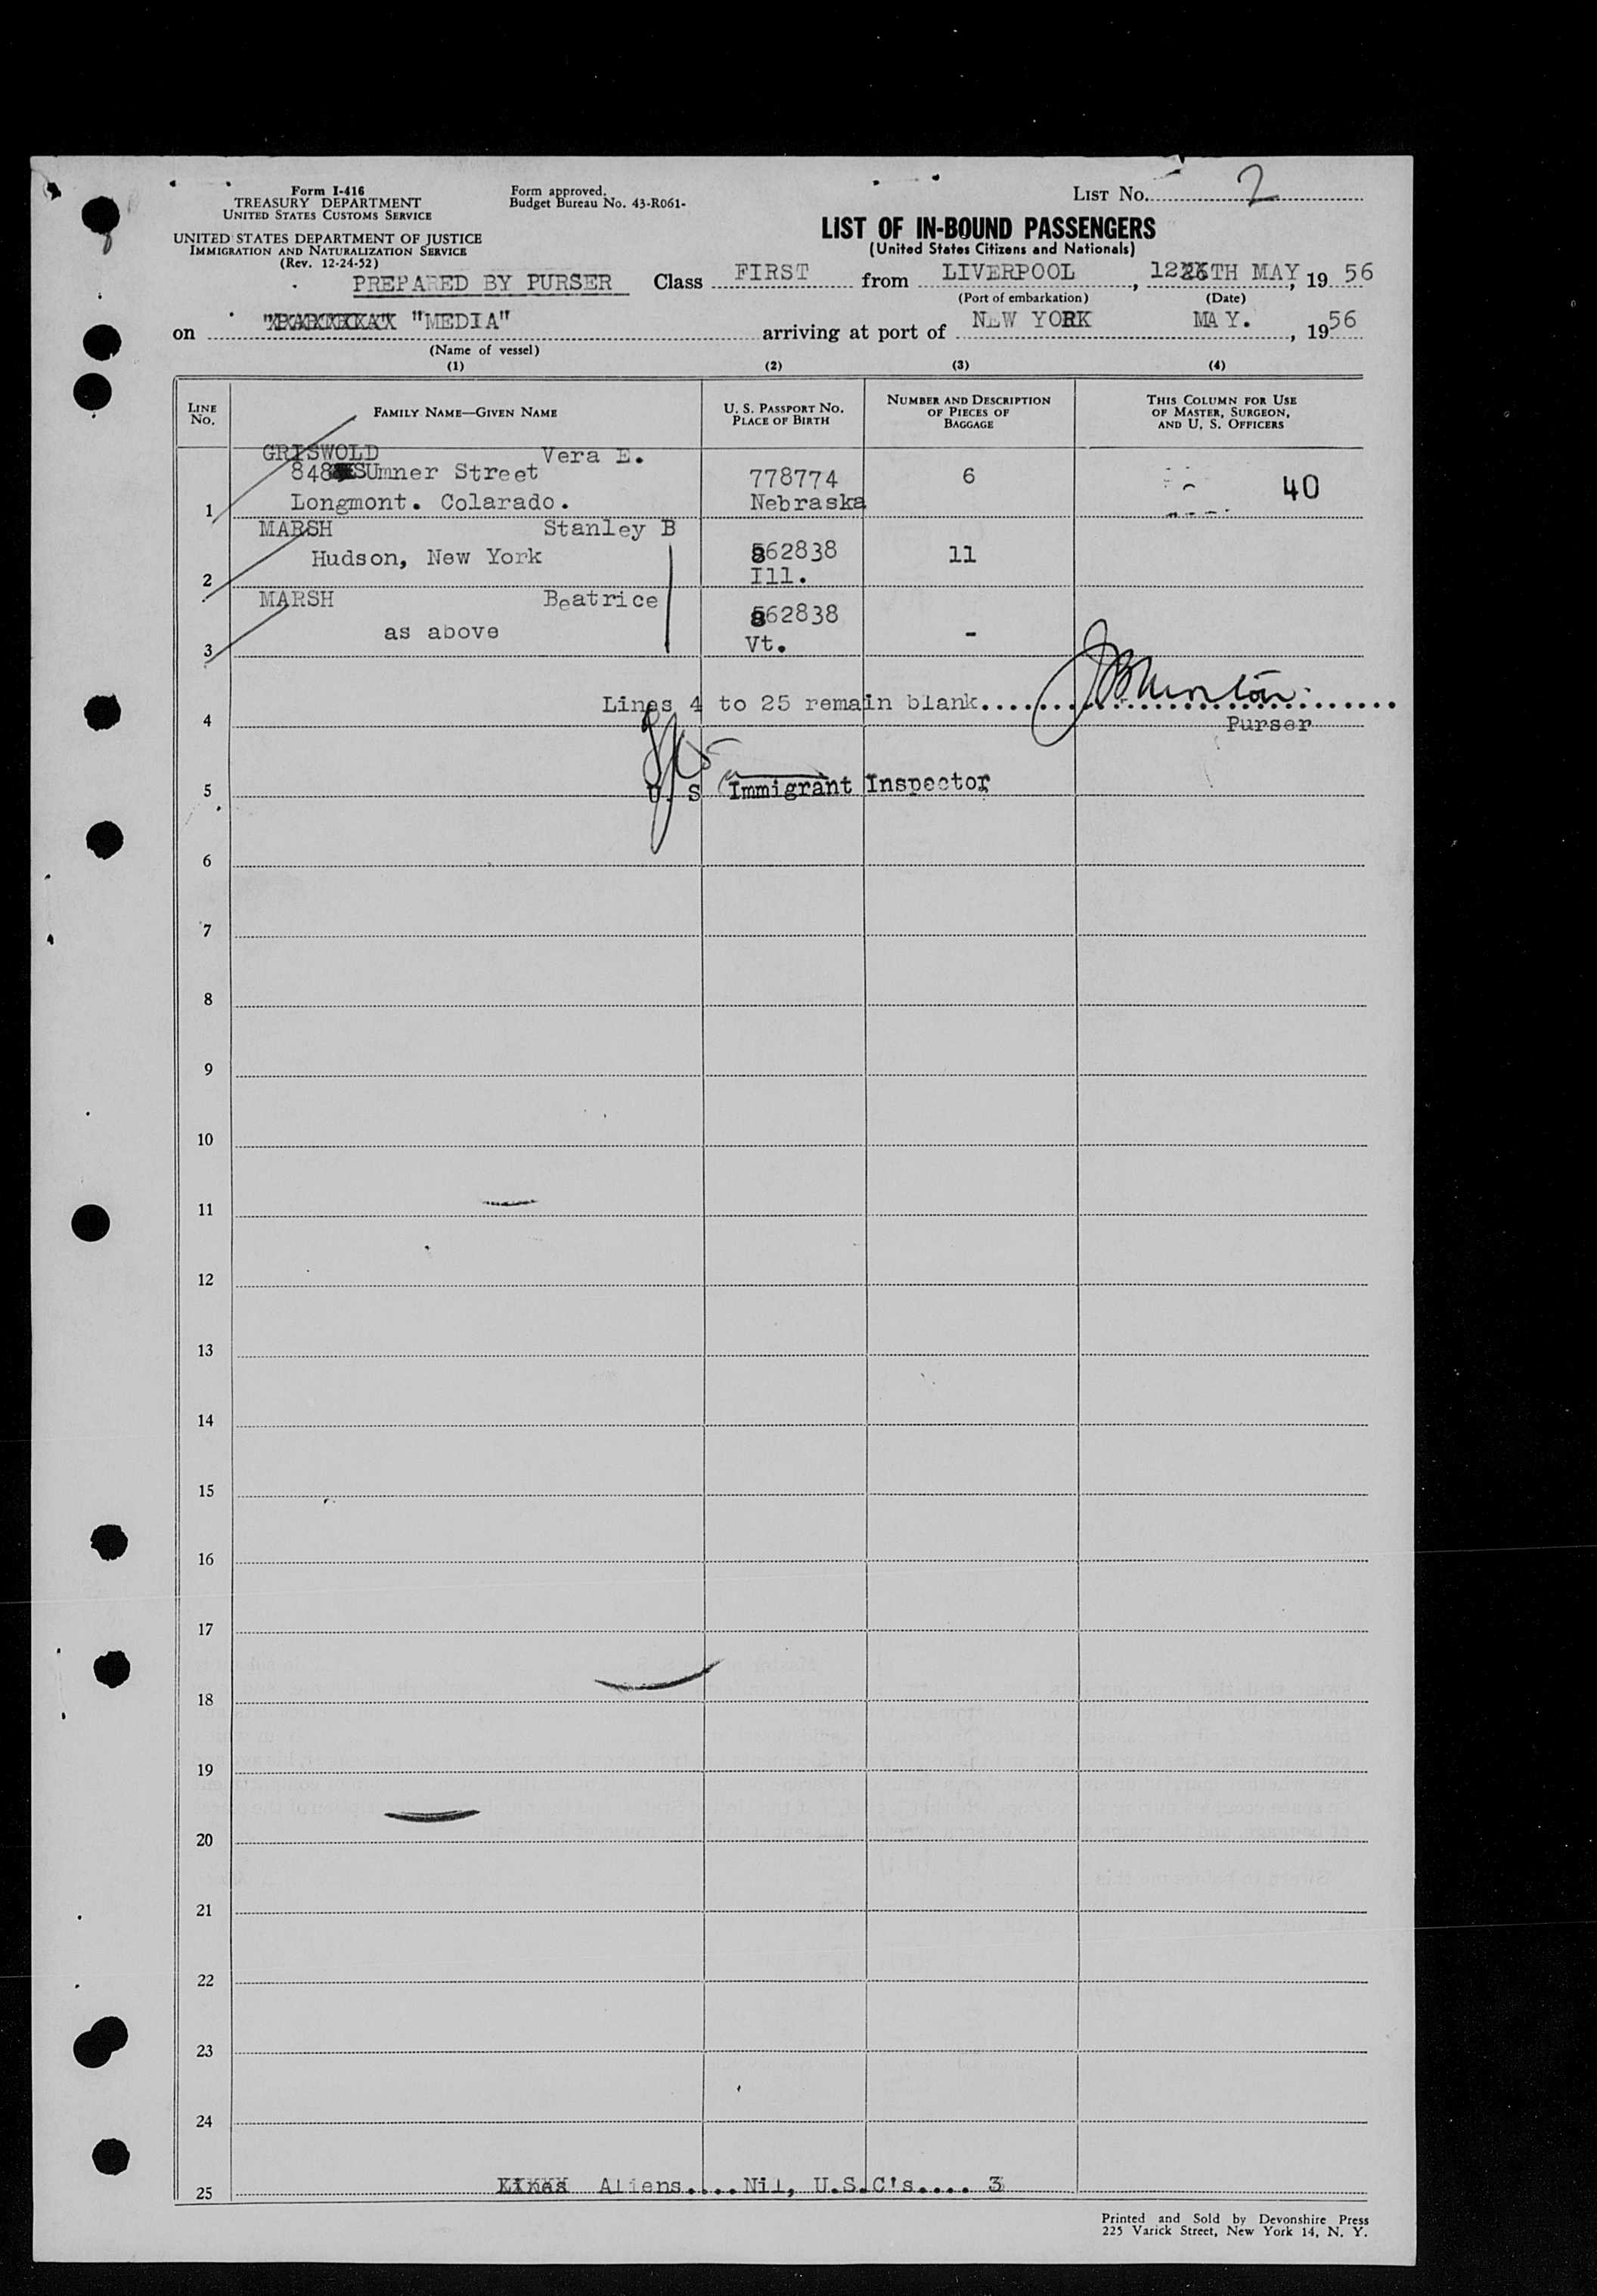 Form I-416
TREASURY DEPARTMENT
UNITED STATES CUSTOMS SERVICE
Form approved.
Budget Bureau No. 43-R061-
LIST No. 2
UNITED STATES DEPARTMENT OF JUSTICE
IMMIGRATION AND NATURALIZATION SERVICE
(Rev. 12-24-52)
LIST OF IN-BOUND PASSENGERS
(United States Citizens and Nationals)
PREPARED BY PURSER Class FIRST from LIVERPOOL, 12TH MAY, 19 56
(Port of embarkation) (Date)
on "MEDIA" arriving at port of NEW YORK MAY. , 1956
(Name of vessel)
(1) (2) (3) (4)
LINE No. FAMILY NAME—GIVEN NAME U. S. PASSPORT NO. PLACE OF BIRTH NUMBER AND DESCRIPTION OF PIECES OF BAGGAGE THIS COLUMN FOR USE OF MASTER, SURGEON, AND U. S. OFFICERS
GRISWOLD Vera E.
848 SUmner Street 778774 6 40
1 Longmont. Colarado. Nebraska
MARSH Stanley B
Hudson, New York 562838 11
2 Ill.
MARSH Beatrice
as above 562838 -
3 Vt.
Lines 4 to 25 remain blank....................
4 Purser
5 U. S Immigrant Inspector
6
7
8
9
10
11
12
13
14
15
16
17
18
19
20
21
22
23
24
25 Aliens....Nil, U.S.C's.... 3
Printed and Sold by Devonshire Press
225 Varick Street, New York 14, N. Y.